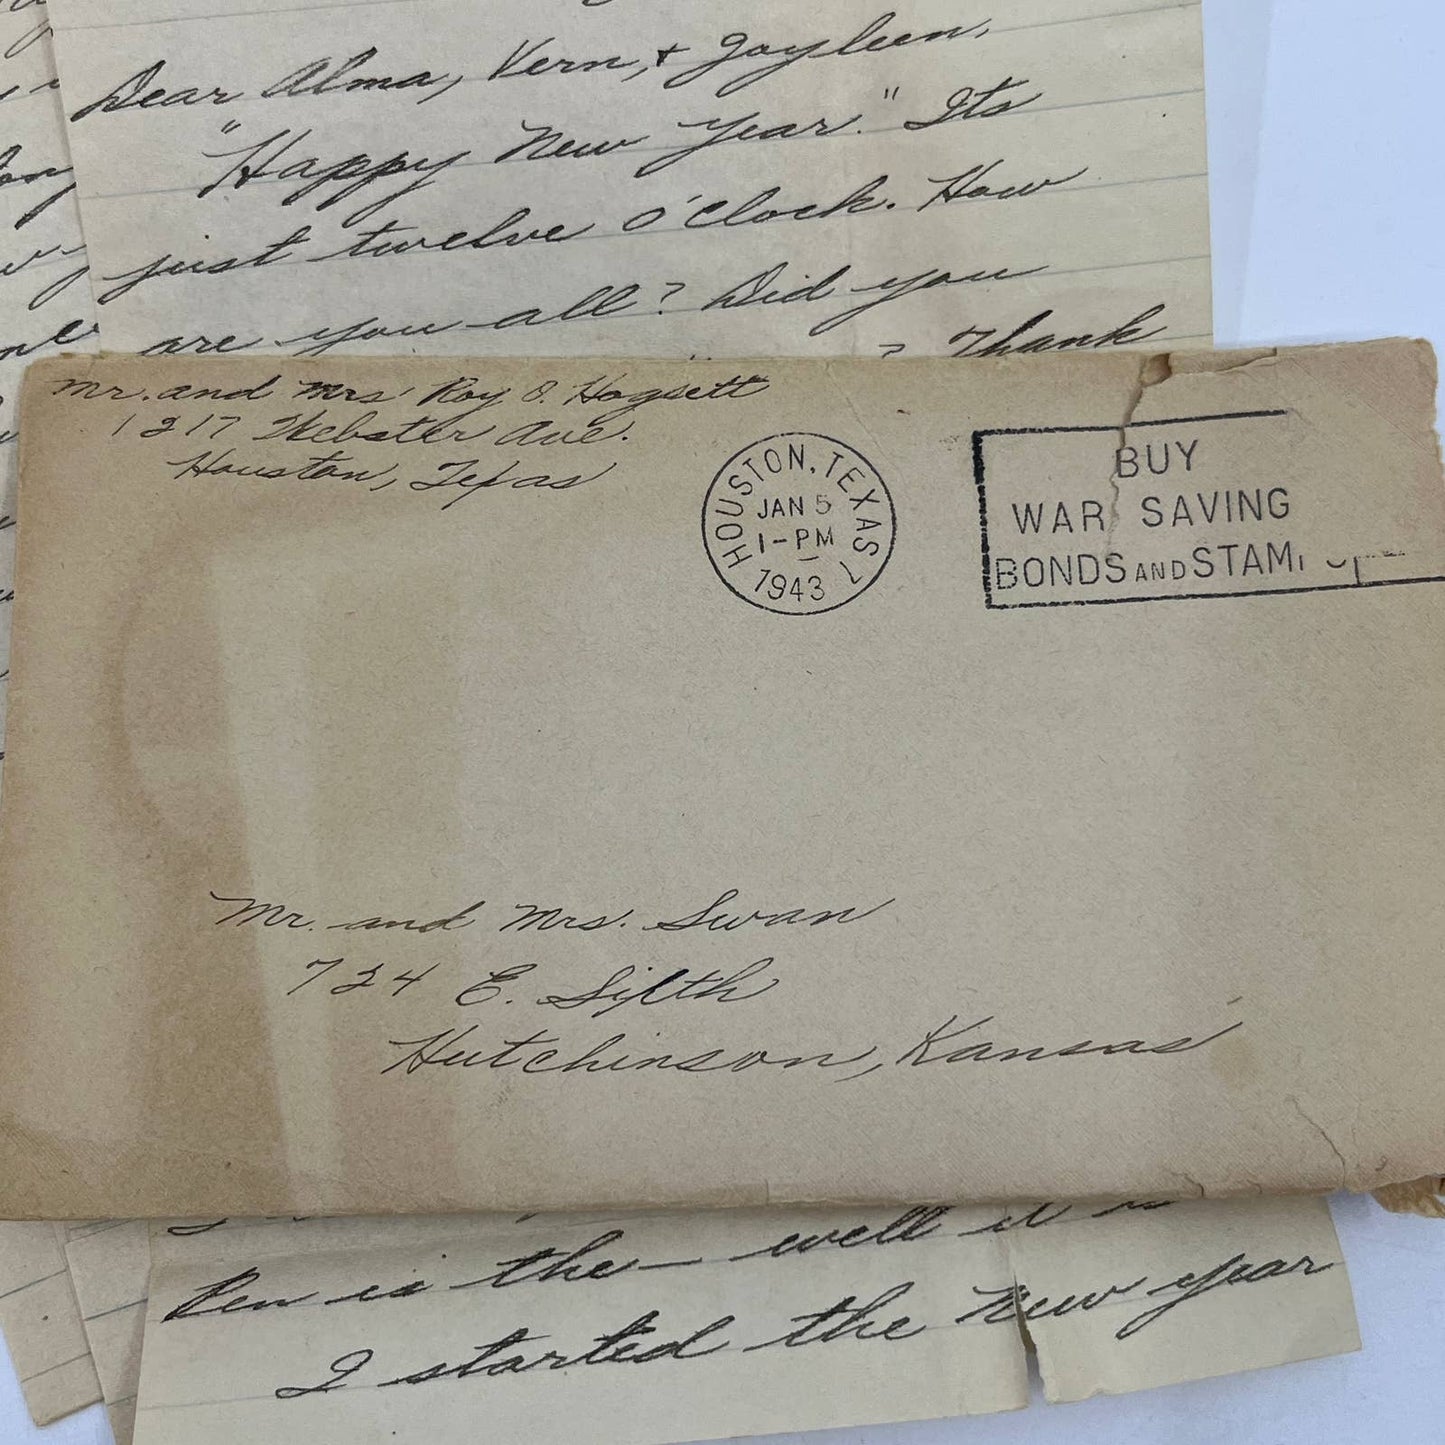 Dear Alma, Vern, + Jayleen,
"Happy New Year." Its
just twelve o'clock. How
are you all? Did you
? Thank
Mr. and Mrs Roy O. Hogsett
1217 Webster Ave.
Houston, Texas
HOUSTON, TEXAS 1
JAN 5
1-PM
1943
BUY
WAR SAVING
BONDS AND STAM
Mr. and Mrs. Swan
724 E. Sixth
Hutchinson, Kansas
Pen is the — well it is
I started the New Year